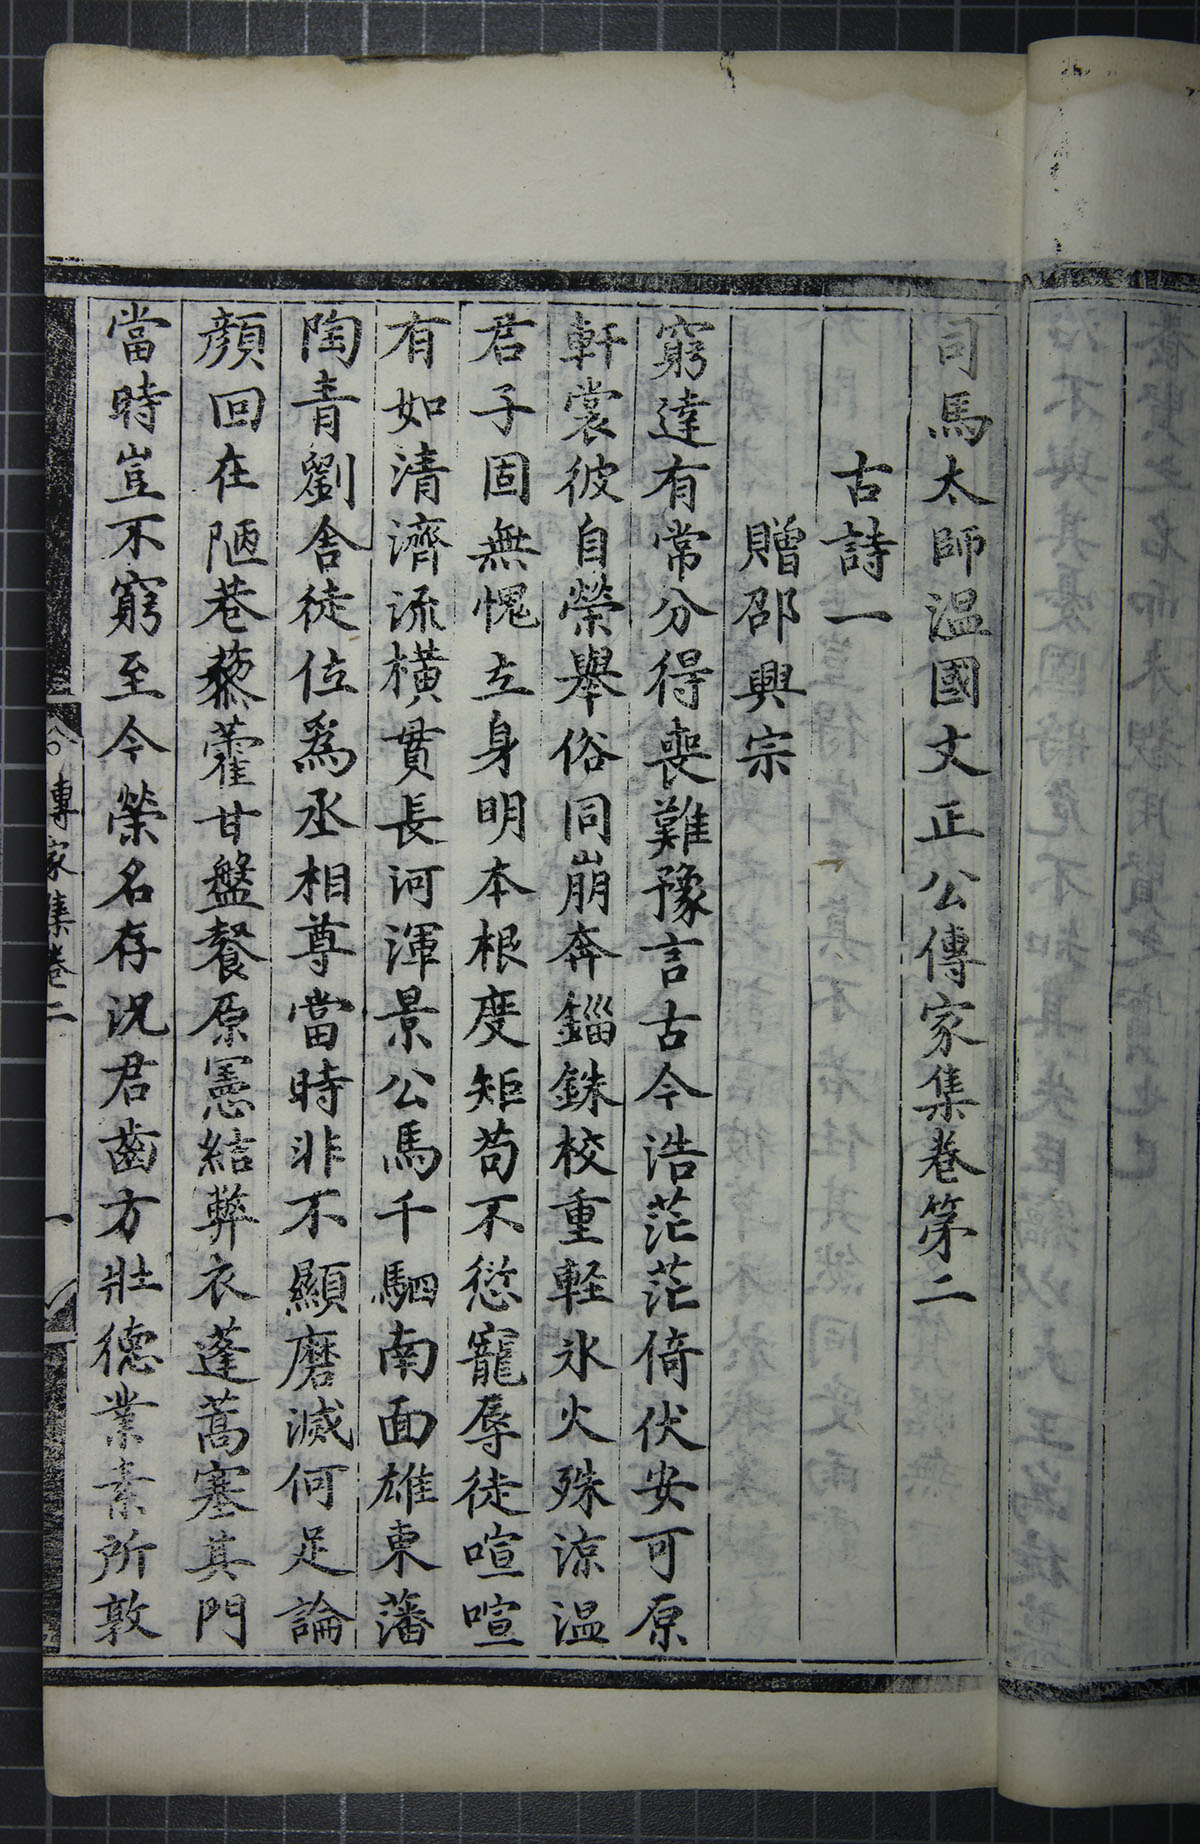 司馬太師溫國文正公傳家集卷第二
古詩一
贈邵興宗
窮達有常分得喪難豫言古今浩茫茫倚伏安可原
軒裳彼自榮舉俗同崩奔錙銖校重軽氷火殊涼溫
君子固無愧立身明本根度矩苟不愆寵辱徒喧喧
有如清濟流橫貫長河渾景公馬千駟南面雄東藩
陶青劉舍徒位爲丞相尊當時非不顯磨滅何足論
顔回在陋巷藜藿甘盤餐原憲結弊衣蓬蒿塞其門
當時豈不窮至今榮名存況君齒方壯德業素所敦
傳家集卷二
一